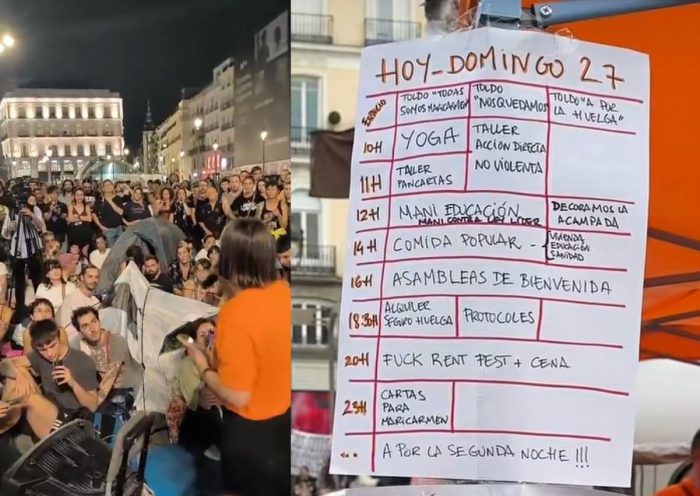 HOY_DOMINGO 27
ESPACIO
TOLDO "TODAS
SOMOS MARICARMEN"
TOLDO
"NOS QUEDAMOS"
TOLDO "A POR
LA HUELGA"
10H
YOGA
TALLER
ACCIÓN DIRECTA
NO VIOLENTA
11H
TALLER
PANCARTAS
12H
MANI EDUCACIÓN
MANI CONTRA
DECORAMOS LA
ACAMPADA
14H
COMIDA POPULAR -
VIVIENDA
EDUCACIÓN
SANIDAD
16H
ASAMBLEAS DE BIENVENIDA
18:30H
ALQUILER
SEGURO HUELGA
PROTOCOLES
20H
FUCK RENT FEST + CENA
23H
CARTAS
PARA
MARICARMEN
...
A POR LA SEGUNDA NOCHE !!!